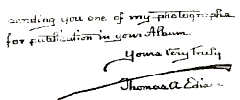 sending you one of my photographs
for publication in your Album
Yours Very Truly
Thomas A Edison